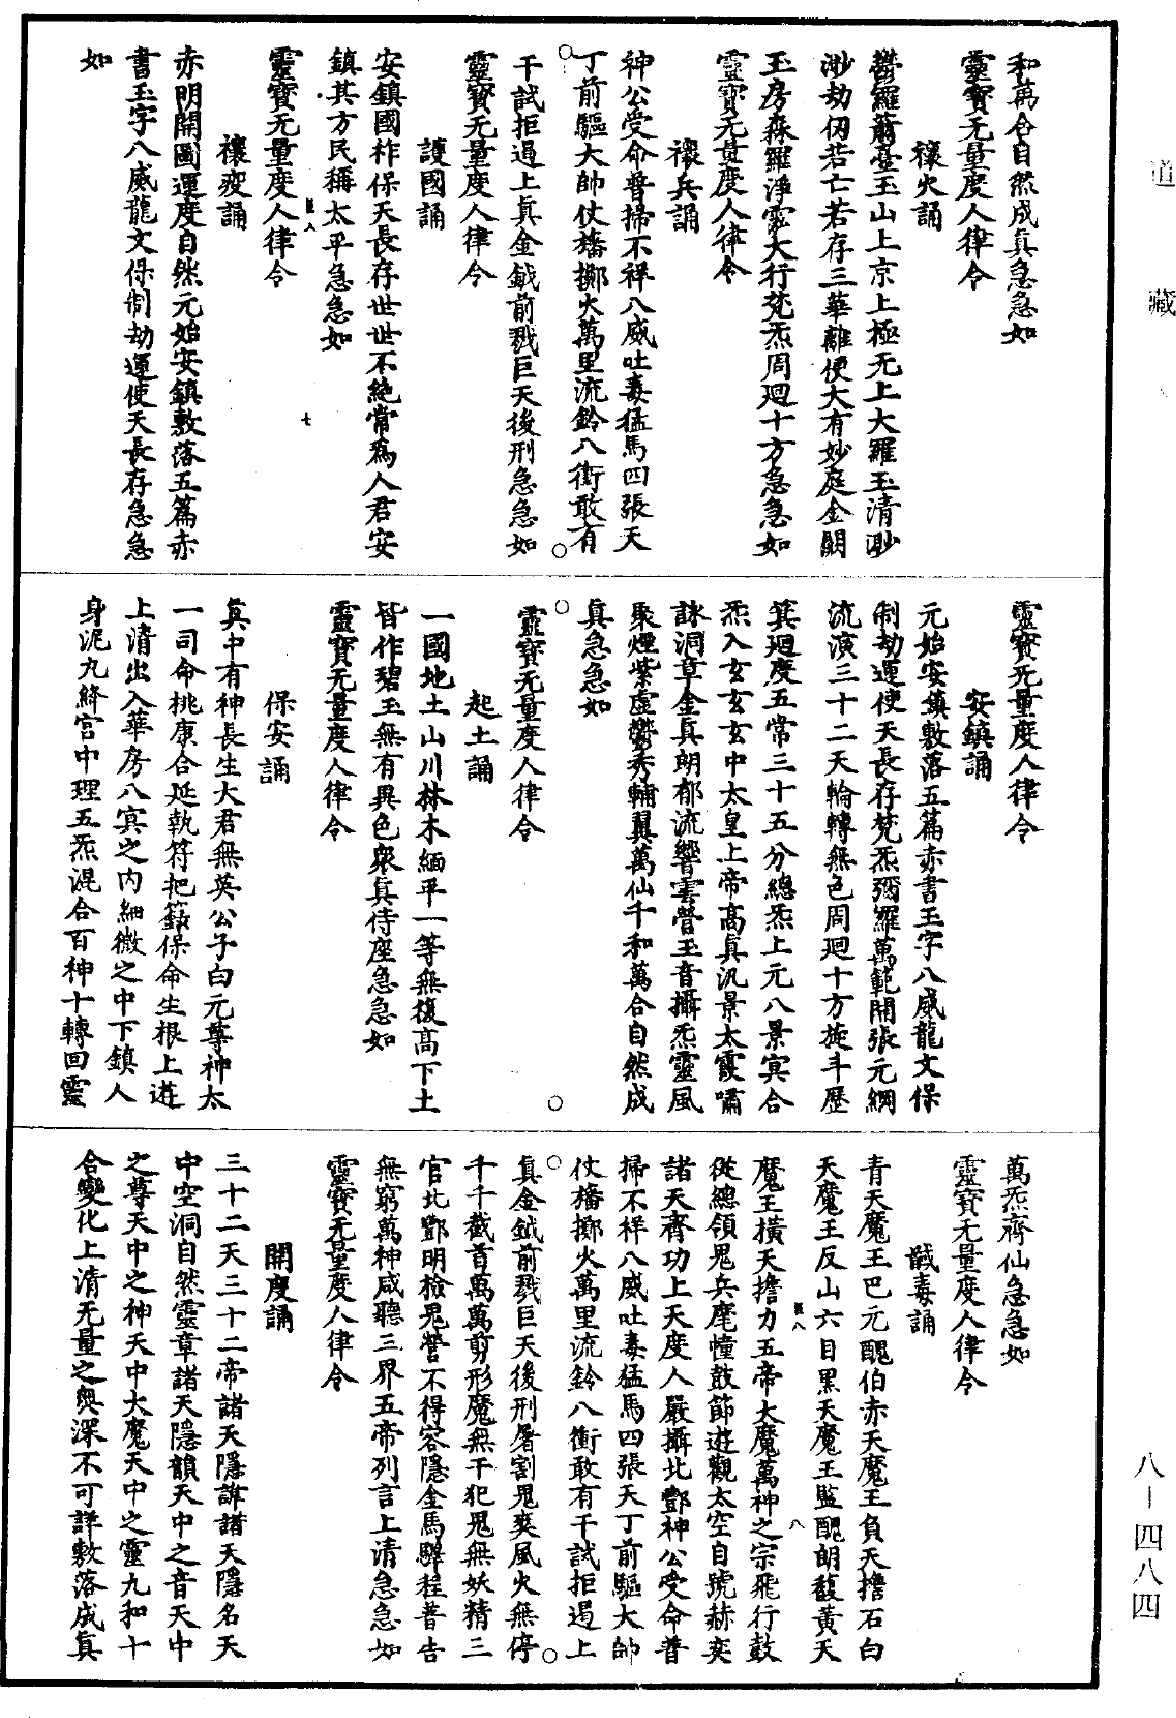 道藏
和萬合自然成真急急如
靈寶无量度人律令
禳火誦
鬱羅蕭臺玉山上京上極无上大羅玉清渺
渺劫仞若亡若存三華離便大有妙庭金闕
玉房森羅淨霐大行梵炁周迴十方急急如
靈寶无量度人律令
禳兵誦
神公受命普掃不祥八威吐毒猛馬四張天
丁前驅大帥仗旛擲火萬里流鈴八衝敢有
干試拒遏上真金鉞前戮巨天後刑急急如
靈寶无量度人律令
護國誦
安鎮國祚保天長存世世不絶常爲人君安
鎮其方民稱太平急急如
靈寶无量度人律令
七
禳疫誦
赤明開圖運度自然元始安鎮敷落五篇赤
書玉字八威龍文保制劫運使天長存急急
如
靈寶无量度人律令
安鎮誦
元始安鎮敷落五篇赤書玉字八威龍文保
制劫運使天長存梵炁彌羅萬範開張元綱
流演三十二天輪轉無色周迴十方旋斗歷
箕迴度五常三十五分總炁上元八景冥合
炁入玄玄玄中太皇上帝高真汎景太霞嘯
詠洞章金真朗郁流響雲營玉音攝炁靈風
聚煙紫虛鬱秀輔翼萬仙千和萬合自然成
真急急如
靈寶无量度人律令
起土誦
一國地土山川林木緬平一等無復高下土
皆作碧玉無有異色衆真侍座急急如
靈寶无量度人律令
保安誦
真中有神長生大君無英公子白元尊神太
一司命桃康合延執符把籙保命生根上遊
上清出入華房八冥之内細微之中下鎮人
身泥丸絳宮中理五炁混合百神十轉回靈
萬炁齊仙急急如
靈寶无量度人律令
馘毒誦
青天魔王巴元醜伯赤天魔王負天擔石白
天魔王反山六目黑天魔王監醜朗馥黄天
魔王横天擔力五帝大魔萬神之宗飛行鼓
八
從總領鬼兵麾幢鼓節遊觀太空自號赫奕
諸天齊功上天度人嚴攝北酆神公受命普
掃不祥八威吐毒猛馬四張天丁前驅大帥
仗旛擲火萬里流鈴八衝敢有干試拒遏上
真金鉞前戮巨天後刑屠割鬼爽風火無停
千千截首萬萬剪形魔無干犯鬼無妖精三
官北酆明檢鬼營不得容隱金馬驛程普告
無窮萬神咸聽三界五帝列言上清急急如
靈寶无量度人律令
開度誦
三十二天三十二帝諸天隱諱諸天隱名天
中空洞自然靈章諸天隱韻天中之音天中
之尊天中之神天中大魔天中之靈九和十
合變化上清无量之奥深不可詳敷落成真
八—四八四